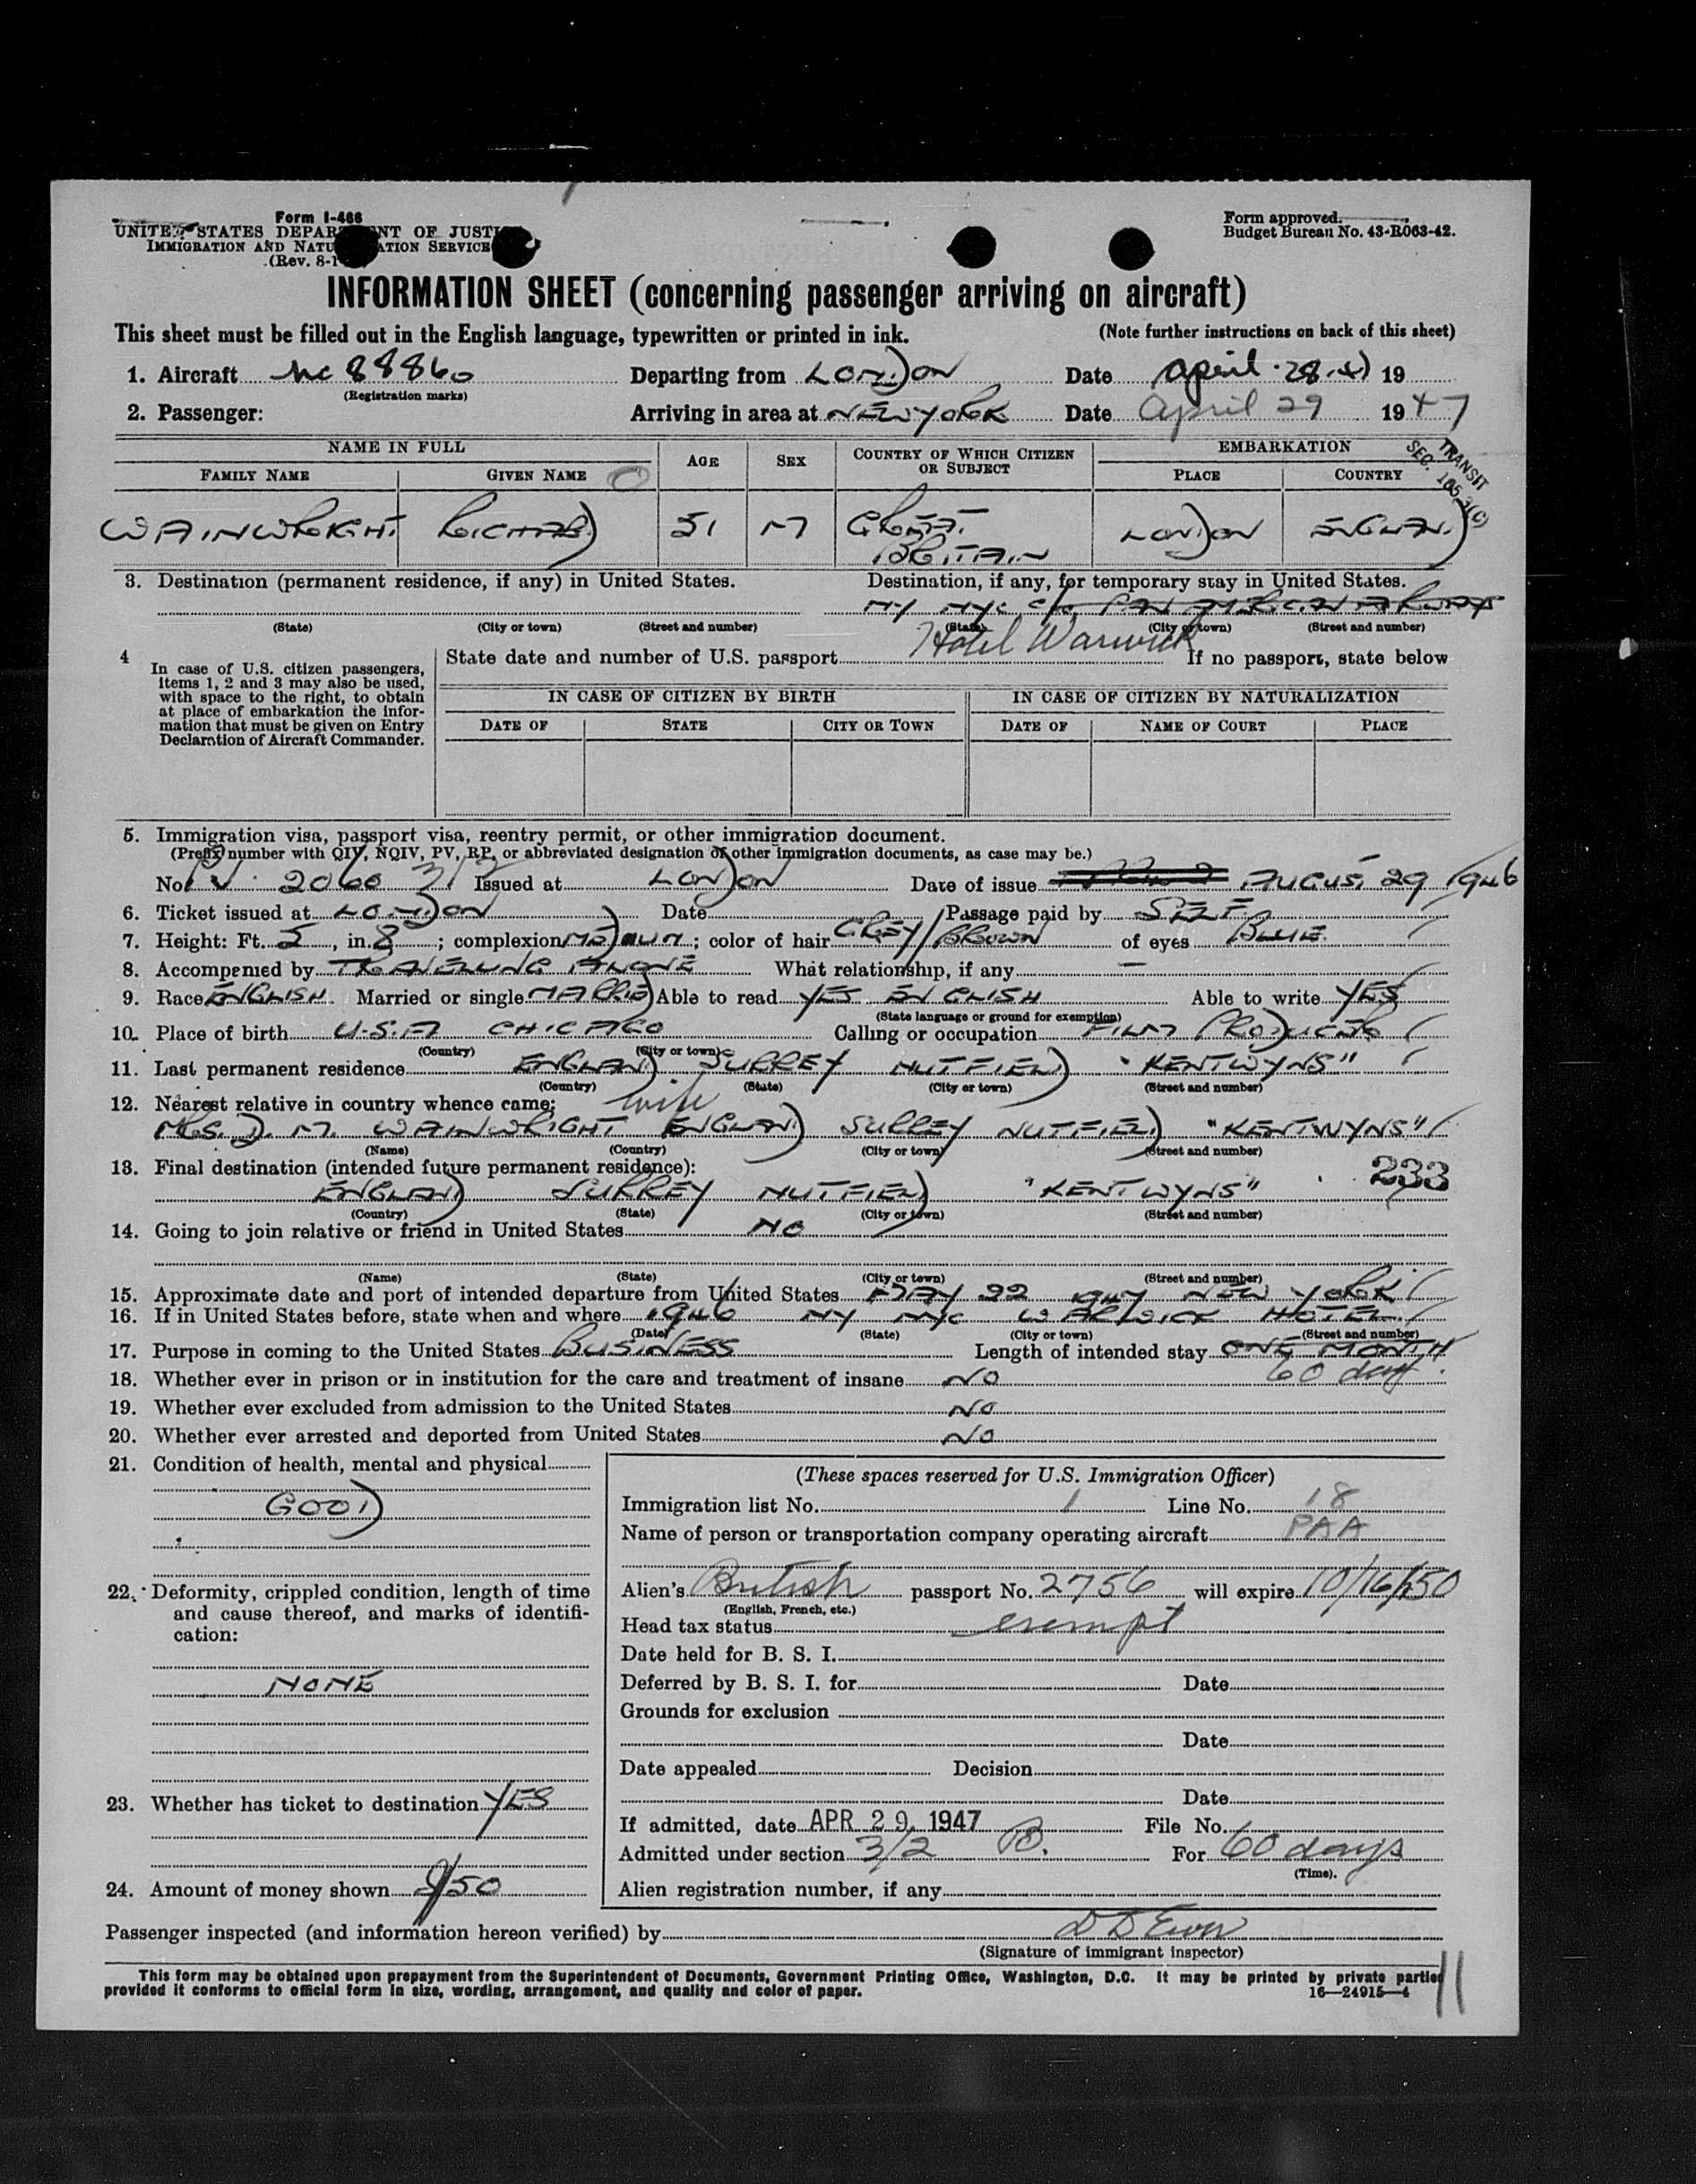 Form I-466
UNITED STATES DEPARTMENT OF JUSTICE
IMMIGRATION AND NATURALIZATION SERVICE
(Rev. 8-1
Form approved.
Budget Bureau No. 43-R063-42.
INFORMATION SHEET (concerning passenger arriving on aircraft)
This sheet must be filled out in the English language, typewritten or printed in ink. (Note further instructions on back of this sheet)
1. Aircraft NC 88860 Departing from LONDON Date April 28 47 19
(Registration marks)
2. Passenger: Arriving in area at NEW YORK Date April 29 1947
NAME IN FULL AGE SEX COUNTRY OF WHICH CITIZEN OR SUBJECT EMBARKATION
FAMILY NAME GIVEN NAME PLACE COUNTRY
TRANSIT
SEC.
WAINWRIGHT RICHARD 51 M GREAT BRITAIN LONDON ENGLAND
3. Destination (permanent residence, if any) in United States. Destination, if any, for temporary stay in United States.
NY NYC c/o PAN AMERICAN AIRWAYS
(State) (City or town) (Street and number) (State) (City or town) (Street and number)
Hotel Warwick
4 In case of U.S. citizen passengers, items 1, 2 and 3 may also be used, with space to the right, to obtain at place of embarkation the information that must be given on Entry Declaration of Aircraft Commander.
State date and number of U.S. passport If no passport, state below
IN CASE OF CITIZEN BY BIRTH IN CASE OF CITIZEN BY NATURALIZATION
DATE OF STATE CITY OR TOWN DATE OF NAME OF COURT PLACE
5. Immigration visa, passport visa, reentry permit, or other immigration document.
(Prefix number with QIV, NQIV, PV, RP, or abbreviated designation of other immigration documents, as case may be.)
No. PV 2060 3/2 Issued at LONDON Date of issue AUGUST 29 1946
6. Ticket issued at LONDON Date Passage paid by SELF
7. Height: Ft. 5, in. 8; complexion MEDIUM; color of hair GREY/BROWN of eyes BLUE
8. Accompanied by TRAVELLING ALONE What relationship, if any —
9. Race ENGLISH. Married or single MARRIED Able to read YES ENGLISH Able to write YES
(State language or ground for exemption)
10. Place of birth U.S.A CHICAGO Calling or occupation FILM PRODUCER
(Country) (City or town)
11. Last permanent residence ENGLAND SURREY NUTFIELD "KENTWYNS"
(Country) (State) (City or town) (Street and number)
12. Nearest relative in country whence came: wife
MRS. D. M. WAINWRIGHT ENGLAND SURREY NUTFIELD "KENTWYNS"
(Name) (Country) (City or town) (Street and number)
13. Final destination (intended future permanent residence): 233
ENGLAND SURREY NUTFIELD "KENTWYNS"
(Country) (State) (City or town) (Street and number)
14. Going to join relative or friend in United States NO
(Name) (State) (City or town) (Street and number)
15. Approximate date and port of intended departure from United States MAY 22 1947 NEW YORK
16. If in United States before, state when and where 1946 NY NYC WARWICK HOTEL
(Date) (State) (City or town) (Street and number)
17. Purpose in coming to the United States BUSINESS Length of intended stay ONE MONTH
60 days
18. Whether ever in prison or in institution for the care and treatment of insane NO
19. Whether ever excluded from admission to the United States NO
20. Whether ever arrested and deported from United States NO
21. Condition of health, mental and physical
GOOD
22. Deformity, crippled condition, length of time and cause thereof, and marks of identification:
NONE
23. Whether has ticket to destination YES
24. Amount of money shown $150
(These spaces reserved for U.S. Immigration Officer)
Immigration list No. 1 Line No. 18
Name of person or transportation company operating aircraft PAA
Alien's British passport No. 2756 will expire 10/16/50
(English, French, etc.)
Head tax status exempt
Date held for B. S. I.
Deferred by B. S. I. for Date
Grounds for exclusion
Date
Date appealed Decision
Date
If admitted, date APR 29 1947 File No.
Admitted under section 3/2 B. For 60 days
(Time).
Alien registration number, if any
Passenger inspected (and information hereon verified) by
(Signature of immigrant inspector)
This form may be obtained upon prepayment from the Superintendent of Documents, Government Printing Office, Washington, D.C. It may be printed by private parties
provided it conforms to official form in size, wording, arrangement, and quality and color of paper. 16—24915—4
11